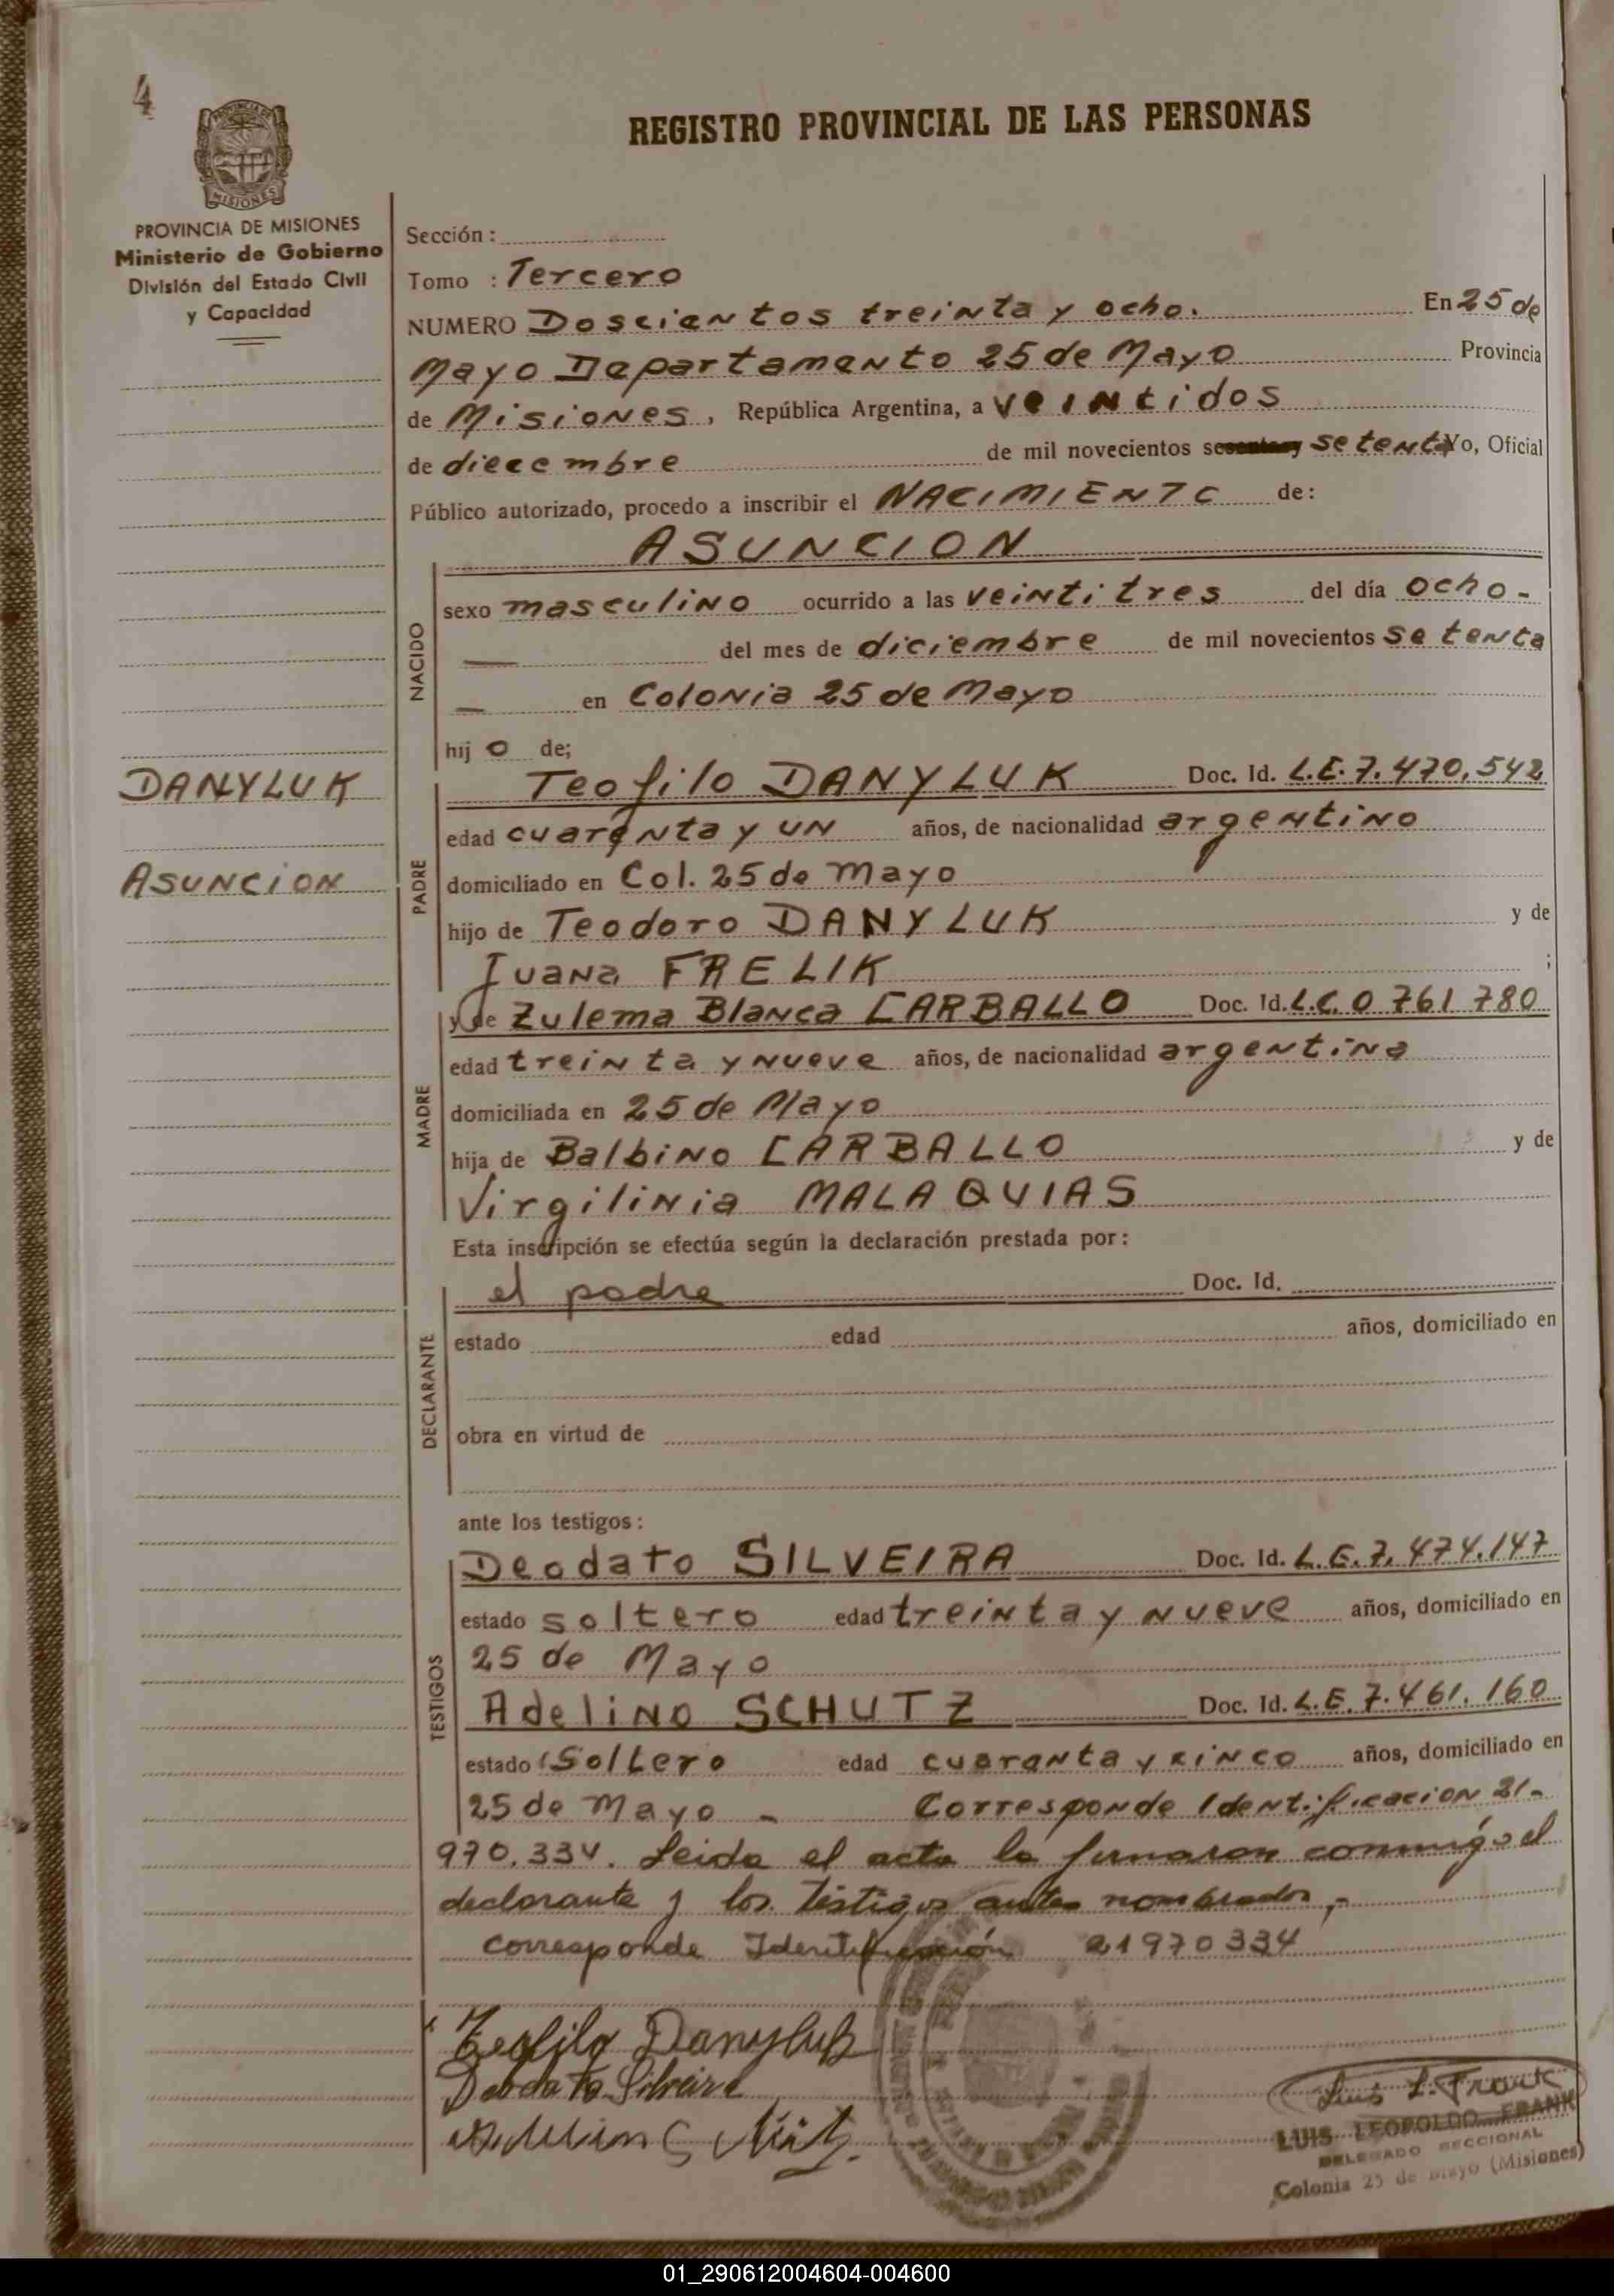 4
REGISTRO PROVINCIAL DE LAS PERSONAS
PROVINCIA DE MISIONES
Ministerio de Gobierno
División del Estado Civil
y Capacidad
Sección:
Tomo : Tercero
NUMERO Doscientos treinta y ocho. En 25 de
Mayo Departamento 25 de Mayo Provincia
de Misiones, República Argentina, a veintidos
de diecembre de mil novecientos setenta Yo, Oficial
Público autorizado, procedo a inscribir el NACIMIENTO de:
ASUNCION
NACIDO
sexo masculino ocurrido a las veintitres del día ocho -
del mes de diciembre de mil novecientos setenta
en Colonia 25 de Mayo
hij o de;
DANYLUK
ASUNCION
PADRE
Teofilo DANYLUK Doc. Id. L.E. 7.470.542
edad cuarenta y un años, de nacionalidad argentino
domiciliado en Col. 25 de Mayo
hijo de Teodoro DANYLUK y de
Juana FRELIK ;
MADRE
y de Zulema Blanca CARBALLO Doc. Id. L.C. 0 761 780
edad treinta y nueve años, de nacionalidad argentina
domiciliada en 25 de Mayo
hija de Balbino CARBALLO y de
Virgilinia MALAQUIAS
Esta inscripción se efectúa según la declaración prestada por:
DECLARANTE
el padre Doc. Id.
estado edad años, domiciliado en
obra en virtud de
ante los testigos:
TESTIGOS
Deodato SILVEIRA Doc. Id. L.E. 7.474.147
estado soltero edad treinta y nueve años, domiciliado en
25 de Mayo
Adelino SCHUTZ Doc. Id. L.E. 7.461.160
estado Soltero edad cuaranta y cinco años, domiciliado en
25 de Mayo - Corresponde Identificacion 21-
970.334. Leida el acta la firmaron conmigo el
declarante y los testigos antes nombrados,-
corresponde Identificación 21970334
Teofilo Danyluk
Deodato Silveira
Luis L. Frank
LUIS LEOPOLDO FRANK
DELEGADO SECCIONAL
Colonia 25 de Mayo (Misiones)
01_290612004604-004600